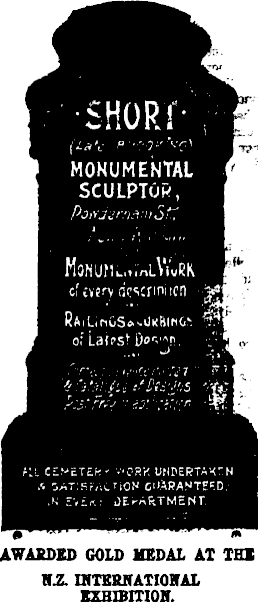 ·SHORT·
(Late
MONUMENTAL
SCULPTOR,
Powderham St,
MONUMENTAL WORK
of every description
RAILINGS & CURBINGS
of Latest Design.
& Catalogue of Designs
Post Free
ALL CEMETERY WORK UNDERTAKEN
& SATISFACTION GUARANTEED,
IN EVERY DEPARTMENT.
AWARDED GOLD MEDAL AT THE
N.Z. INTERNATIONAL
EXHIBITION.